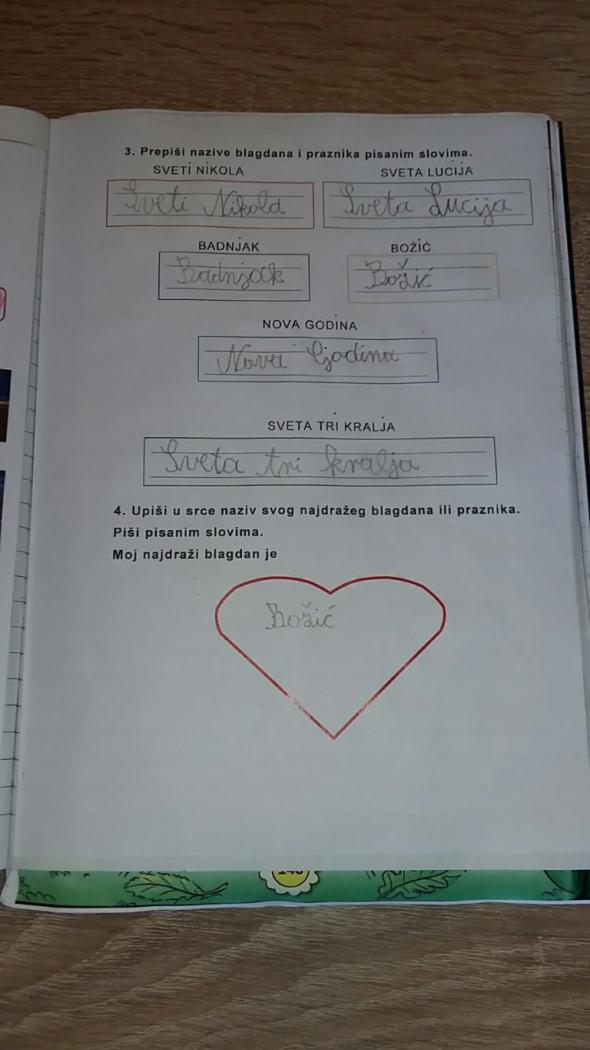 3. Prepiši nazive blagdana i praznika pisanim slovima.
SVETI NIKOLA SVETA LUCIJA
Sveti Nikola Sveta Lucija
BADNJAK BOŽIĆ
Badnjak Božić
NOVA GODINA
Nova Godina
SVETA TRI KRALJA
Sveta tri kralja
4. Upiši u srce naziv svog najdražeg blagdana ili praznika.
Piši pisanim slovima.
Moj najdraži blagdan je
Božić